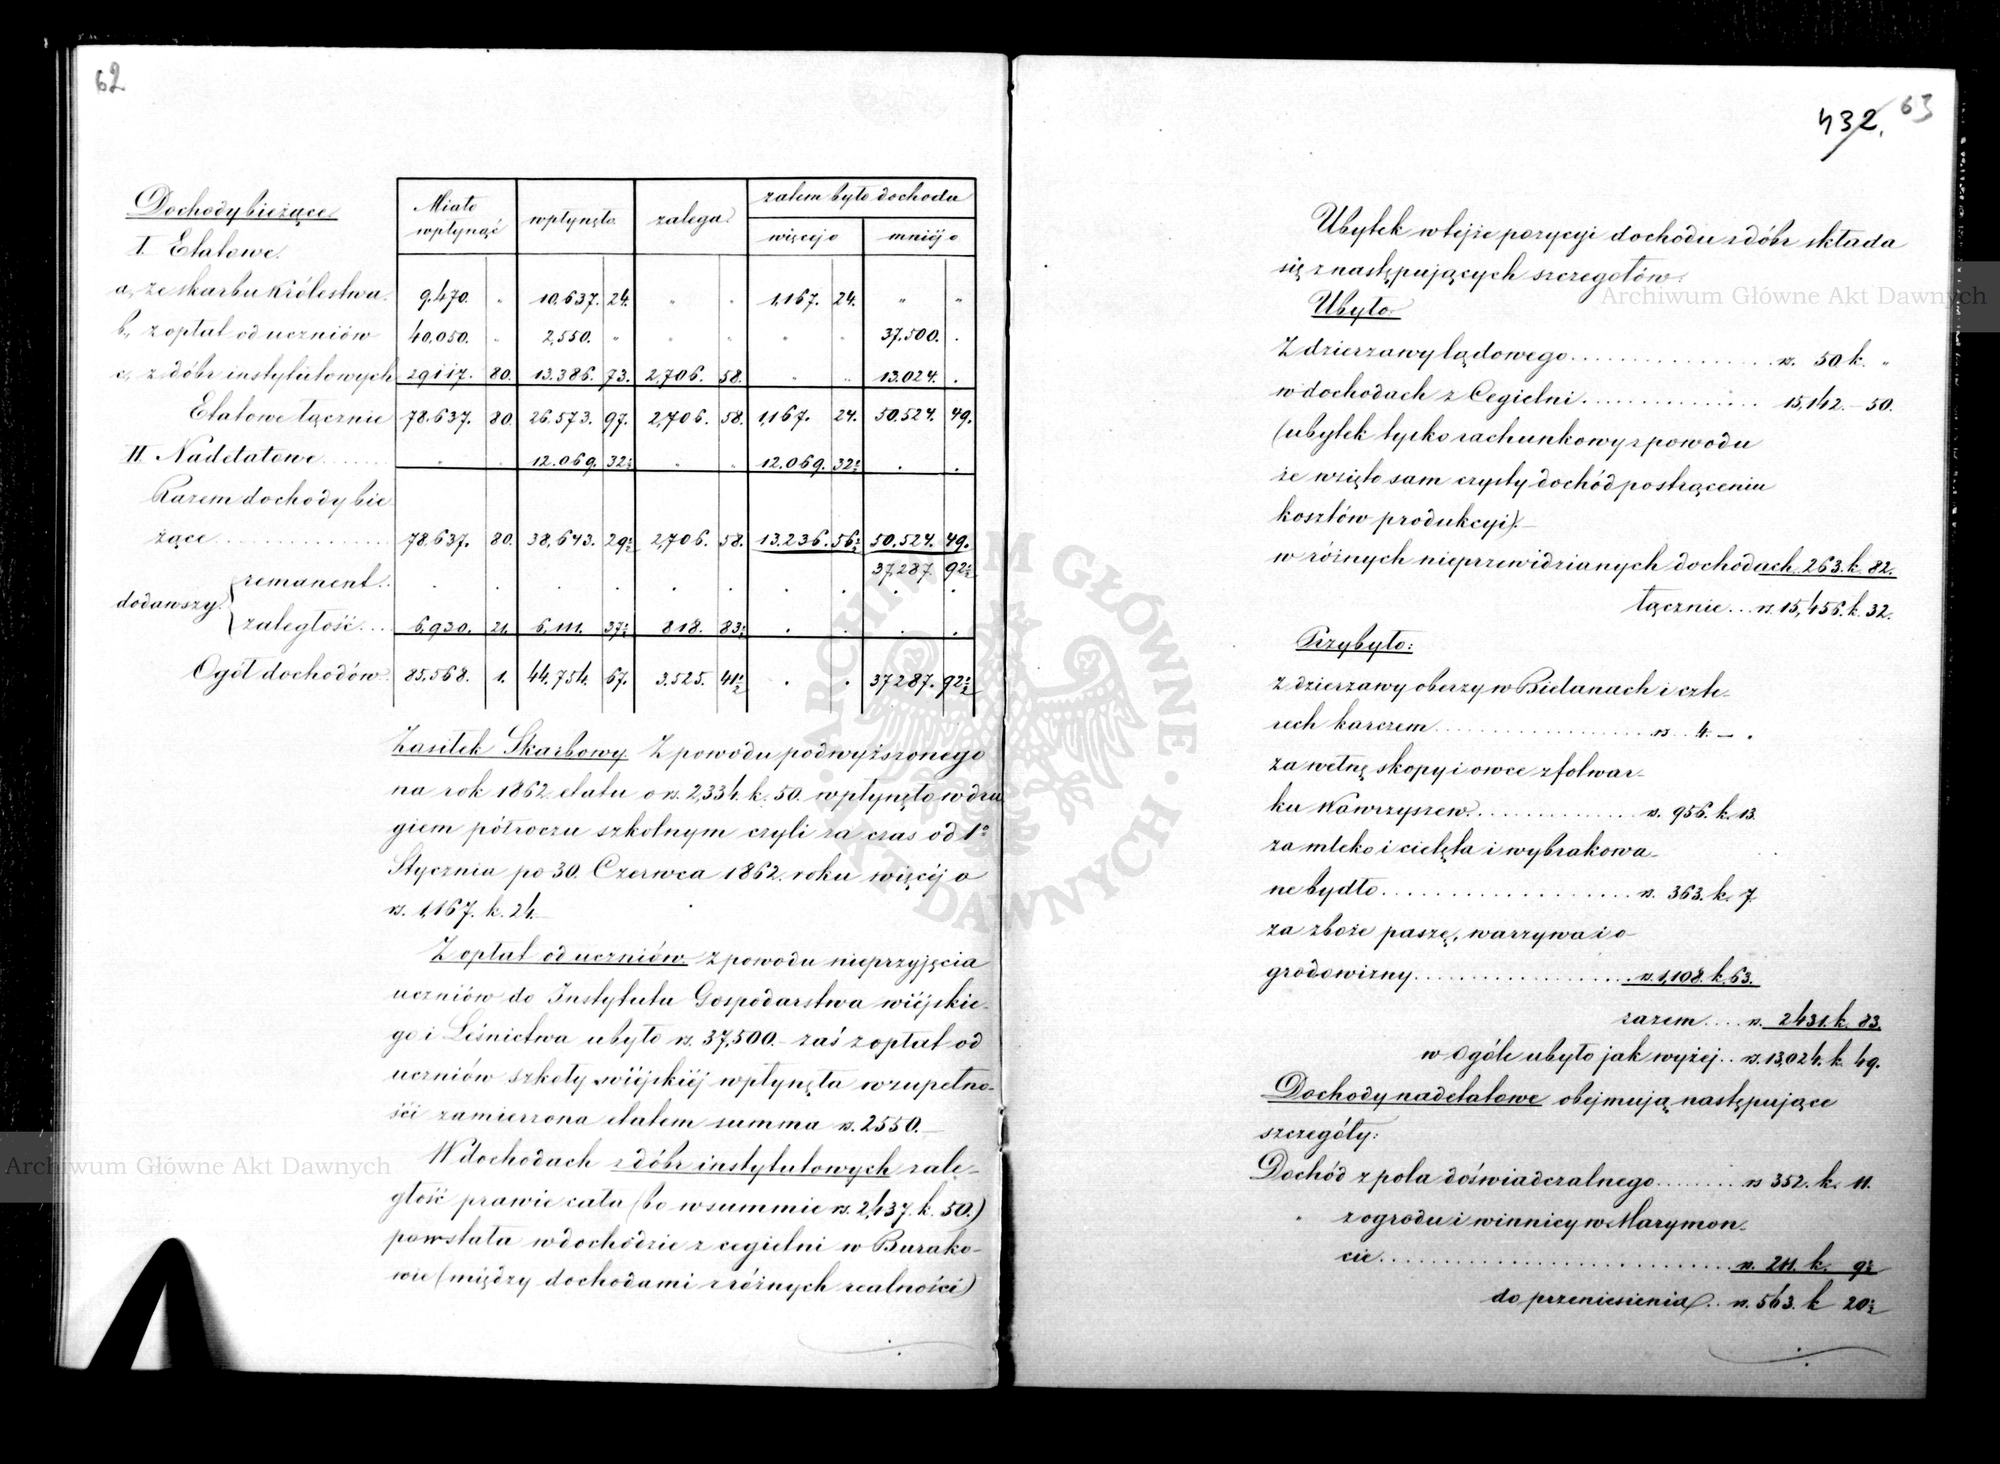 62
Dochody bieżące
Miało wpłynąć
wpłynęło
zalega
zatem było dochodu
więcej o
mniéj o
I Etatowe.
a, ze skarbu Królestwa. 9,470. „ 10,637. 24. „ „ 1,167. 24. „ „
b, z opłat od uczniów 40,050. „ 2,550. „ „ „ „ „ 37.500. .
c, z dóbr instytutowych 29117. 80. 13.386. 73. 2,706. 58. „ „ 13.024. .
Etatowe łącznie 78.637. 80. 26.573. 97. 2,706. 58. 1,167. 24. 50.524. 49.
II Nadetatowe ...... „ . 12.069. 32½ „ „ 12.069. 32½ . .
Razem dochody bie
żące .............. 78.637. 80. 38,643. 29½ 2,706. 58. 13.236. 56½ 50.524. 49.
37.287. 92½
dodawszy {remanent. . . . . . . . . . . .
{zaległość... 6,930. 21. 6,111. 37½ 818. 83½ . . . .
Ogół dochodów 85.568. 1. 44.754. 67. 3.525. 41½ . . 37287. 92½
Zasiłek Skarbowy. Z powodu podwyższonego
na rok 1862. etatu o rs. 2,334. k. 50. wpłynęło w dru
giem półroczu szkolnym czyli za czas od 1°
Stycznia po 30. Czerwca 1862. roku więcéj o
rs. 1,167. k. 24.—
Z opłat od uczniów z powodu nieprzyjęcia
uczniów do Instytutu Gospodarstwa wiéjskie-
go i Leśnictwa ubyło rs. 37,500.— zaś z opłat od
uczniów szkoły wiéjskiéj wpłynęła w zupełno-
ści zamierzona etatem summa rs. 2550.—
W dochodach z dóbr instytutowych zale-
głość prawie cała (bo w summie rs. 2,437. k. 50.)
powstała w dochodzie z cegielni w Burako-
wie (między dochodami z różnych realności)
432. 63
Ubytek w tejże pozycyi dochodu z dóbr składa
się z następujących szczegółów:
Ubyło
Z dzierzawy lądowego................ rs. 50 k. „
w dochodach z Cegielni................ 15,142. — 50.
(ubytek tylko rachunkowy z powodu
że wzięto sam czysty dochód po strąceniu
kosztów produkcyi).—
w różnych nieprzewidzianych dochodach. 263. k. 82.
łącznie... rs. 15,456. k. 32.
Przybyło:
z dzierzawy oberzy w Bielanach i czte-
rech karczem.................... rs. 4. — .
za wełnę skopy i owce z folwar-
ku Wawrzyszew................ rs. 956. k. 13.
za mleko i cielęta i wybrakowa-
ne bydło.................... rs. 363. k. 7.
za zboże paszę, warzywa i o-
grodowizny.................... rs. 1,108. k. 63.
razem.... rs. 2431. k. 83.
w ogóle ubyło jak wyżej.. rs. 13,024. k. 49.
Dochody nadetatowe obejmują następujące
szczegóły:
Dochód z pola doświadczalnego........ rs 352. k. 11.
„ z ogrodu i winnicy w Marymon-
cie............................ rs. 211. k. 9½
do przeniesienia.. rs. 563. k 20½
Archiwum Główne Akt Dawnych
Archiwum Główne Akt Dawnych
ARCHIWUM GŁÓWNE AKT DAWNYCH